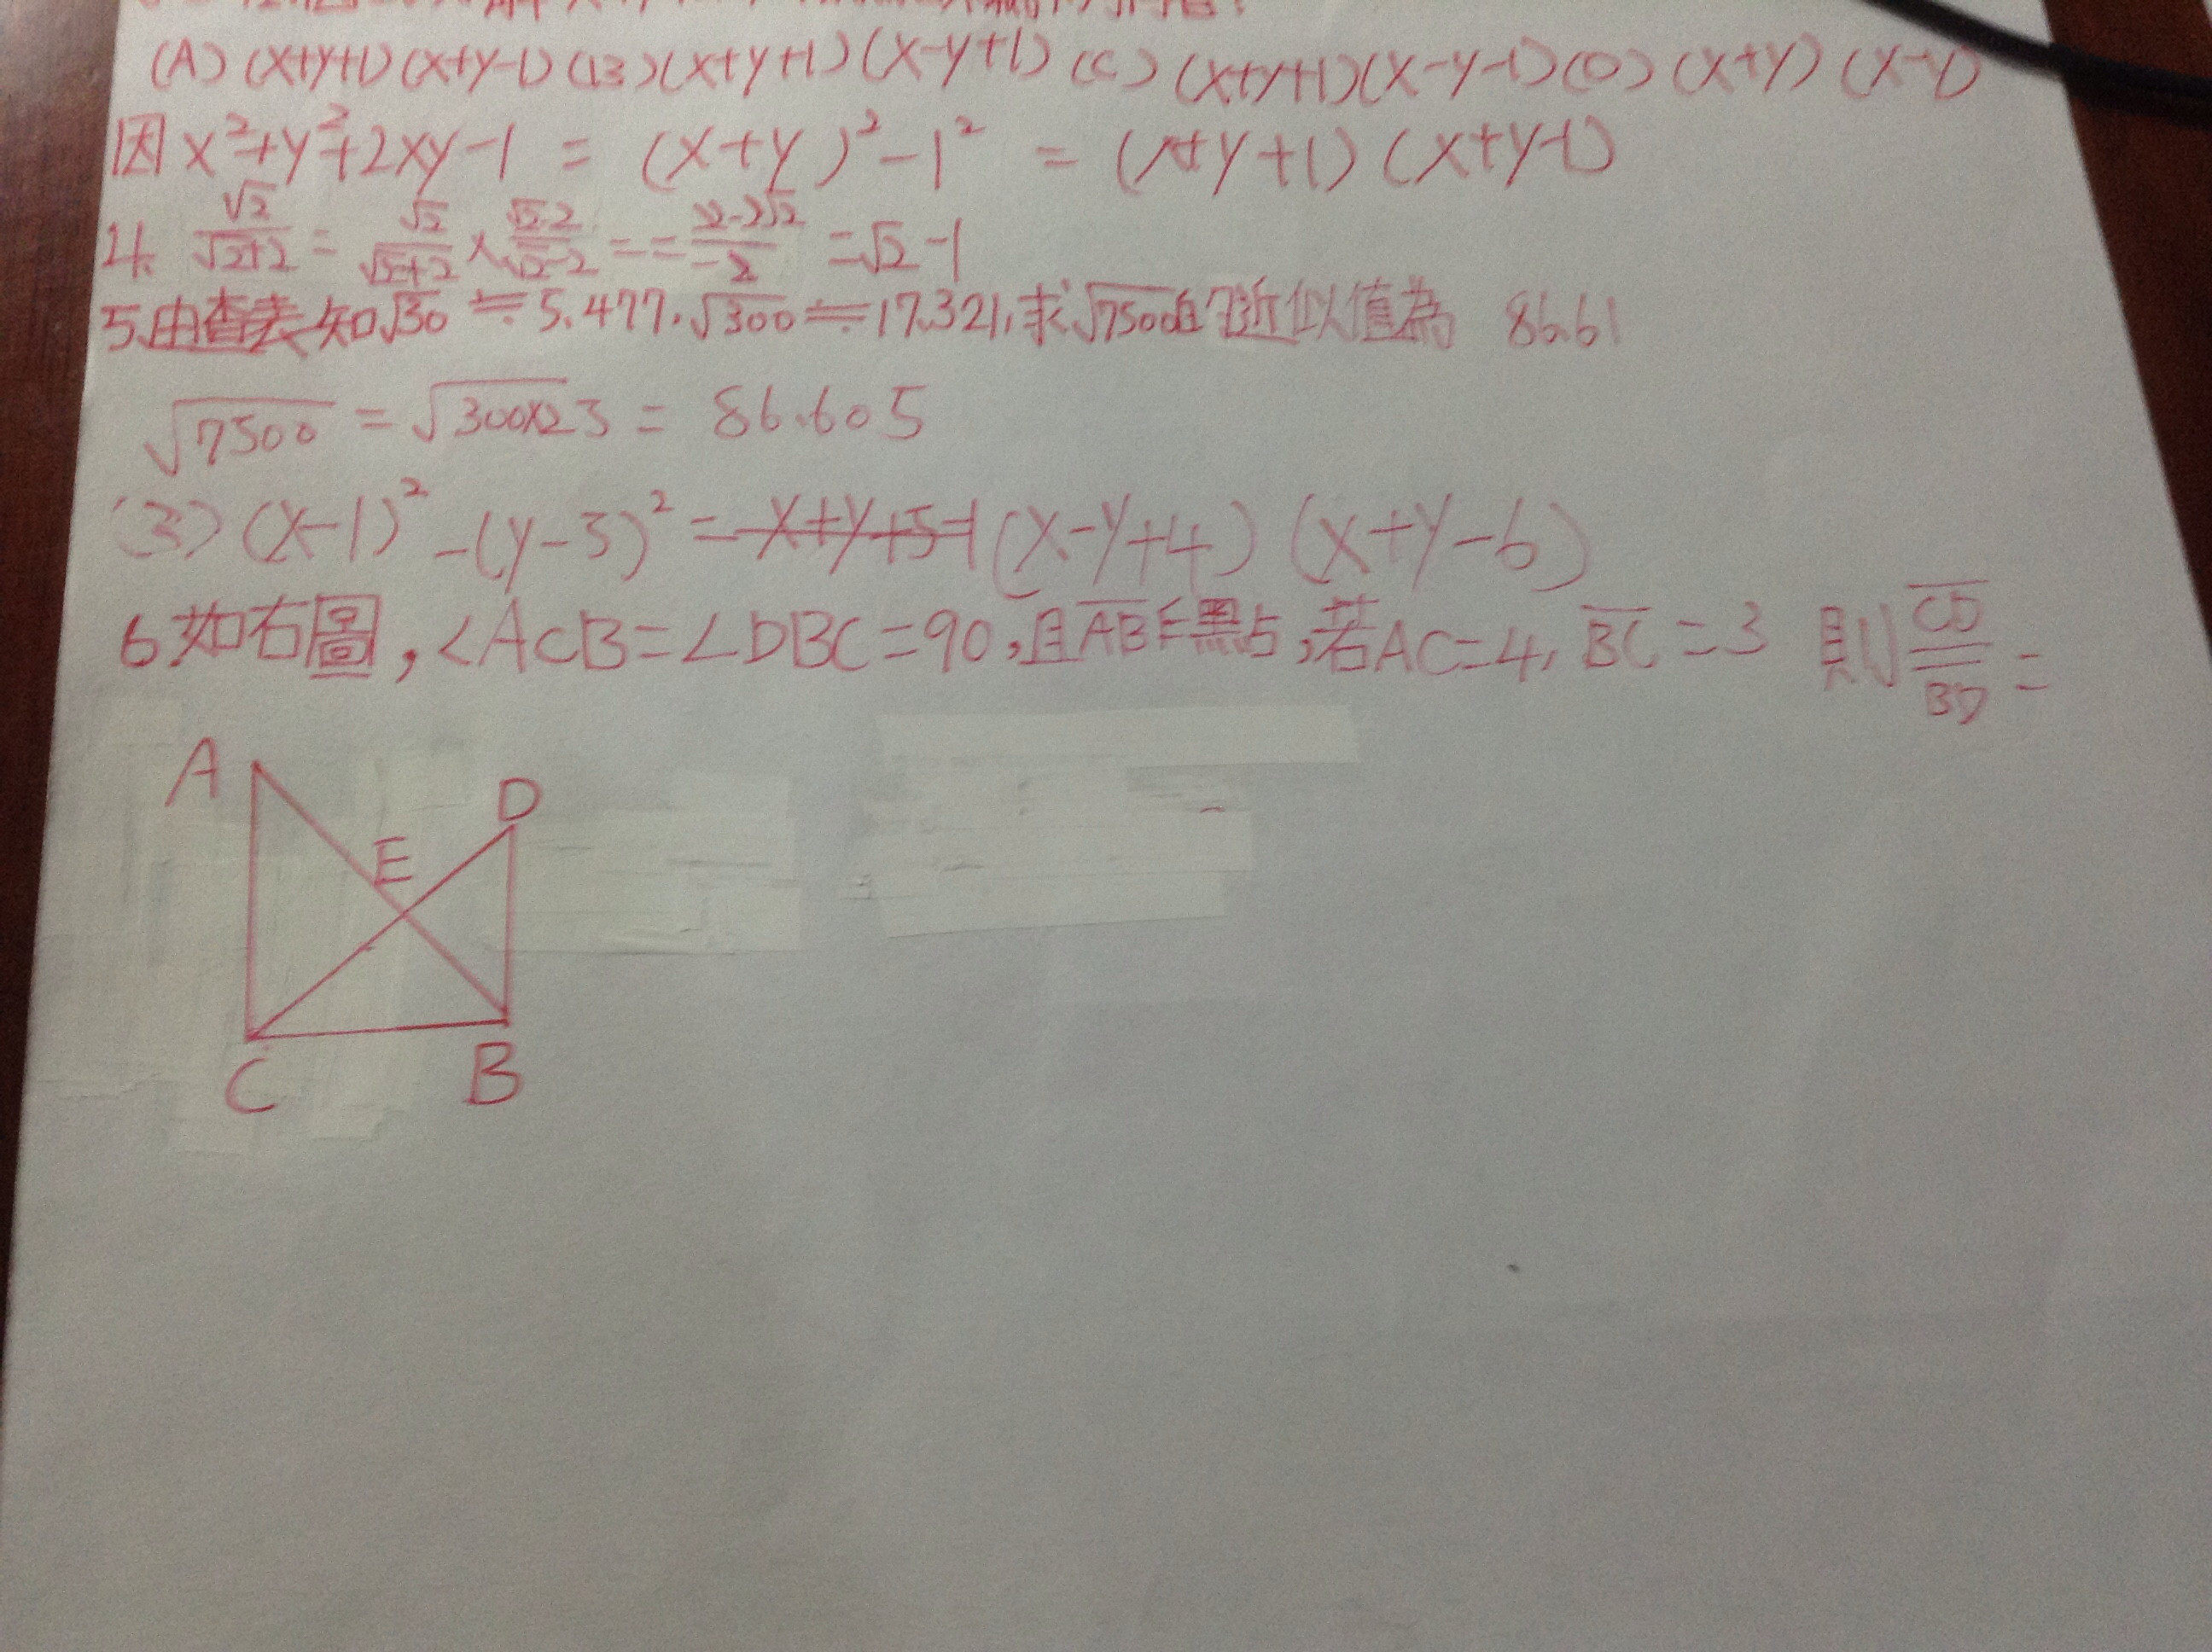 (A)(x+y+1)(x+y-1)(B)(x+y+1)(x-y+1)(C)(x+y+1)(x-y-1)(D)(x+y)(x-1)
因x²+y²+2xy-1=(x+y)²-1²=(x+y+1)(x+y-1)
4. √2/√2+2=√2/√2+2×√2-2/√2-2==2-2√2/-2=√2-1
5.由查表知√30≒5.477.√300≒17.321,求√7500的近似值為 86.61
√7500=√300x25=86.605
(3)(x-1)²-(y-5)²=-x+y+5-1(x-y+4)(x+y-6)
6如右圖,∠ACB=∠DBC=90,且AB 黑占,若AC=4,BC=3 則CD/BD=
A
D
E
C
B